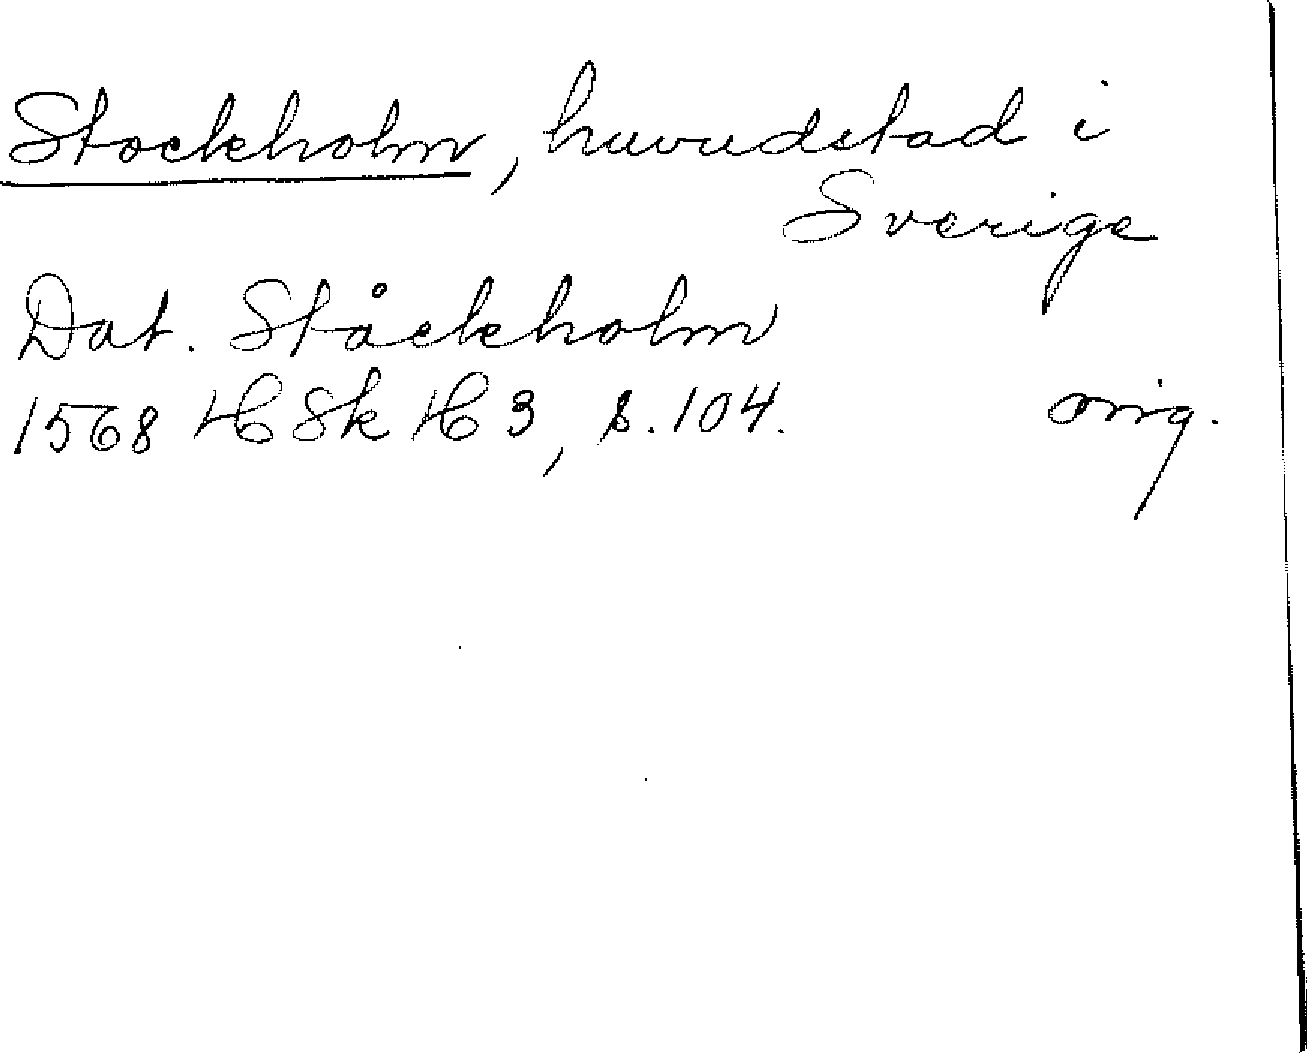 Stockholm, huvudstad i
Sverige
Dat. Ståckholm
1568 HSkH 3, s. 104. orig.